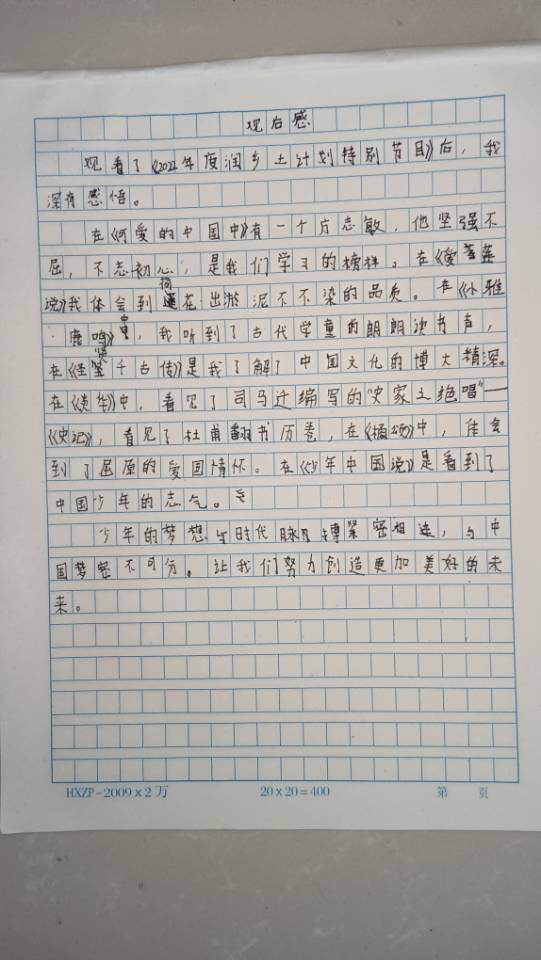 观后感
观看了《2022年度润乡土计划特别节目》后，我
深有感悟。
在《可爱的中国中》有一个方志敏，他坚强不
屈，不忘初心，是我们学习的榜样。在《爱莲
说》我体会到荷花出淤泥不不染的品质。在《小雅
·鹿鸣》中，我听到了古代学童的朗朗读书声，
在《圣贤千古传》是我了解了中国文化的博大精深。
在《贵华》中，看见了司马迁编写的"史家之绝唱"——
《史记》，看见了杜甫翻书历卷，在《橘颂》中，体会
到了屈原的爱国情怀。在《少年中国说》是看到了
中国少年的志气。
少年的梦想与时代脉搏紧密相连，与中
国梦密不可分。让我们努力创造更加美好的未
来。
HXZP-2009×2万 20×20=400 第 页